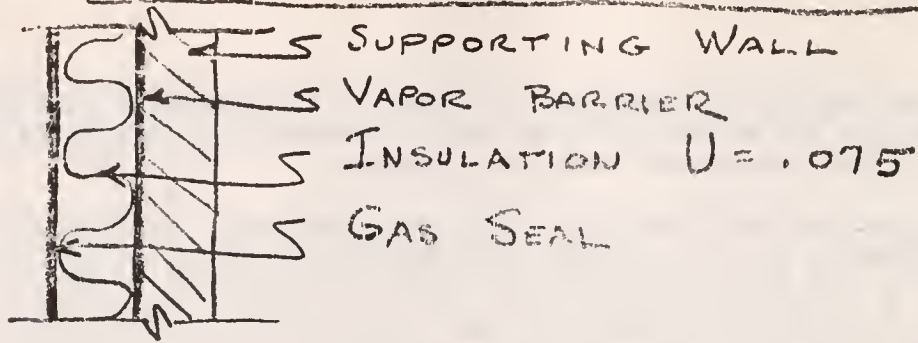 SUPPORTING WALL
VAPOR BARRIER
INSULATION U = .075
GAS SEAL